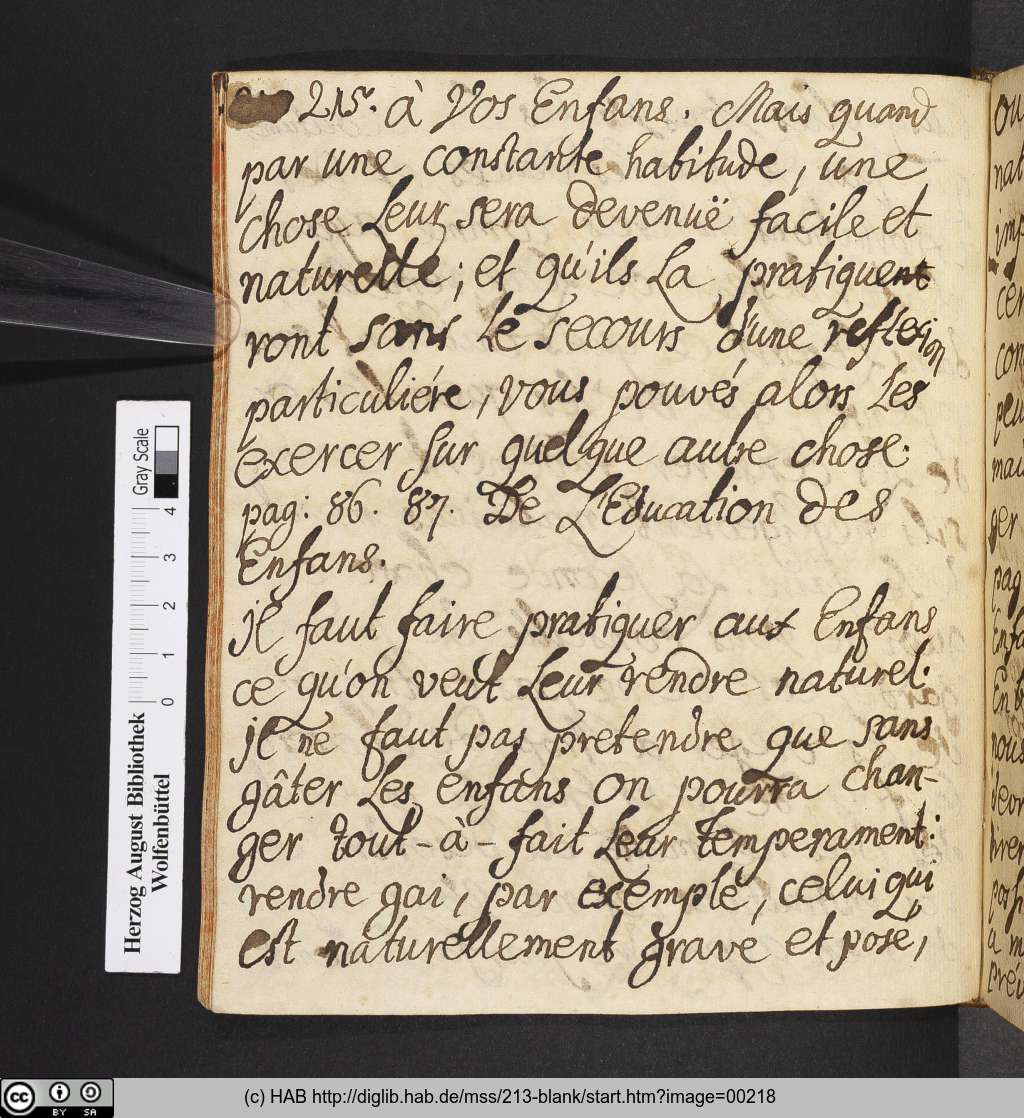 215. à Vos Enfans. Mais quand
par une constante habitude, une
chose Leur sera devenuë facile et
naturelle; et qu'ils La pratiquent
ront sans Le secours d'une reflexion
particuliére, vous pouvés alors Les
exercer sur quelque autre chose.
pag: 86. 87. De L'Education des
Enfans.
il faut faire pratiquer aux Enfans
ce qu'on veut Leur rendre naturel.
il ne faut pas pretendre que sans
gâter Les enfans on pourra chan-
ger tout-à-fait Leur temperament:
rendre gai, par exemple, celui qui
est naturellement grave et posé,
Gray Scale
0 1 2 3 4
Herzog August Bibliothek
Wolfenbüttel
cc BY SA
(c) HAB http://diglib.hab.de/mss/213-blank/start.htm?image=00218